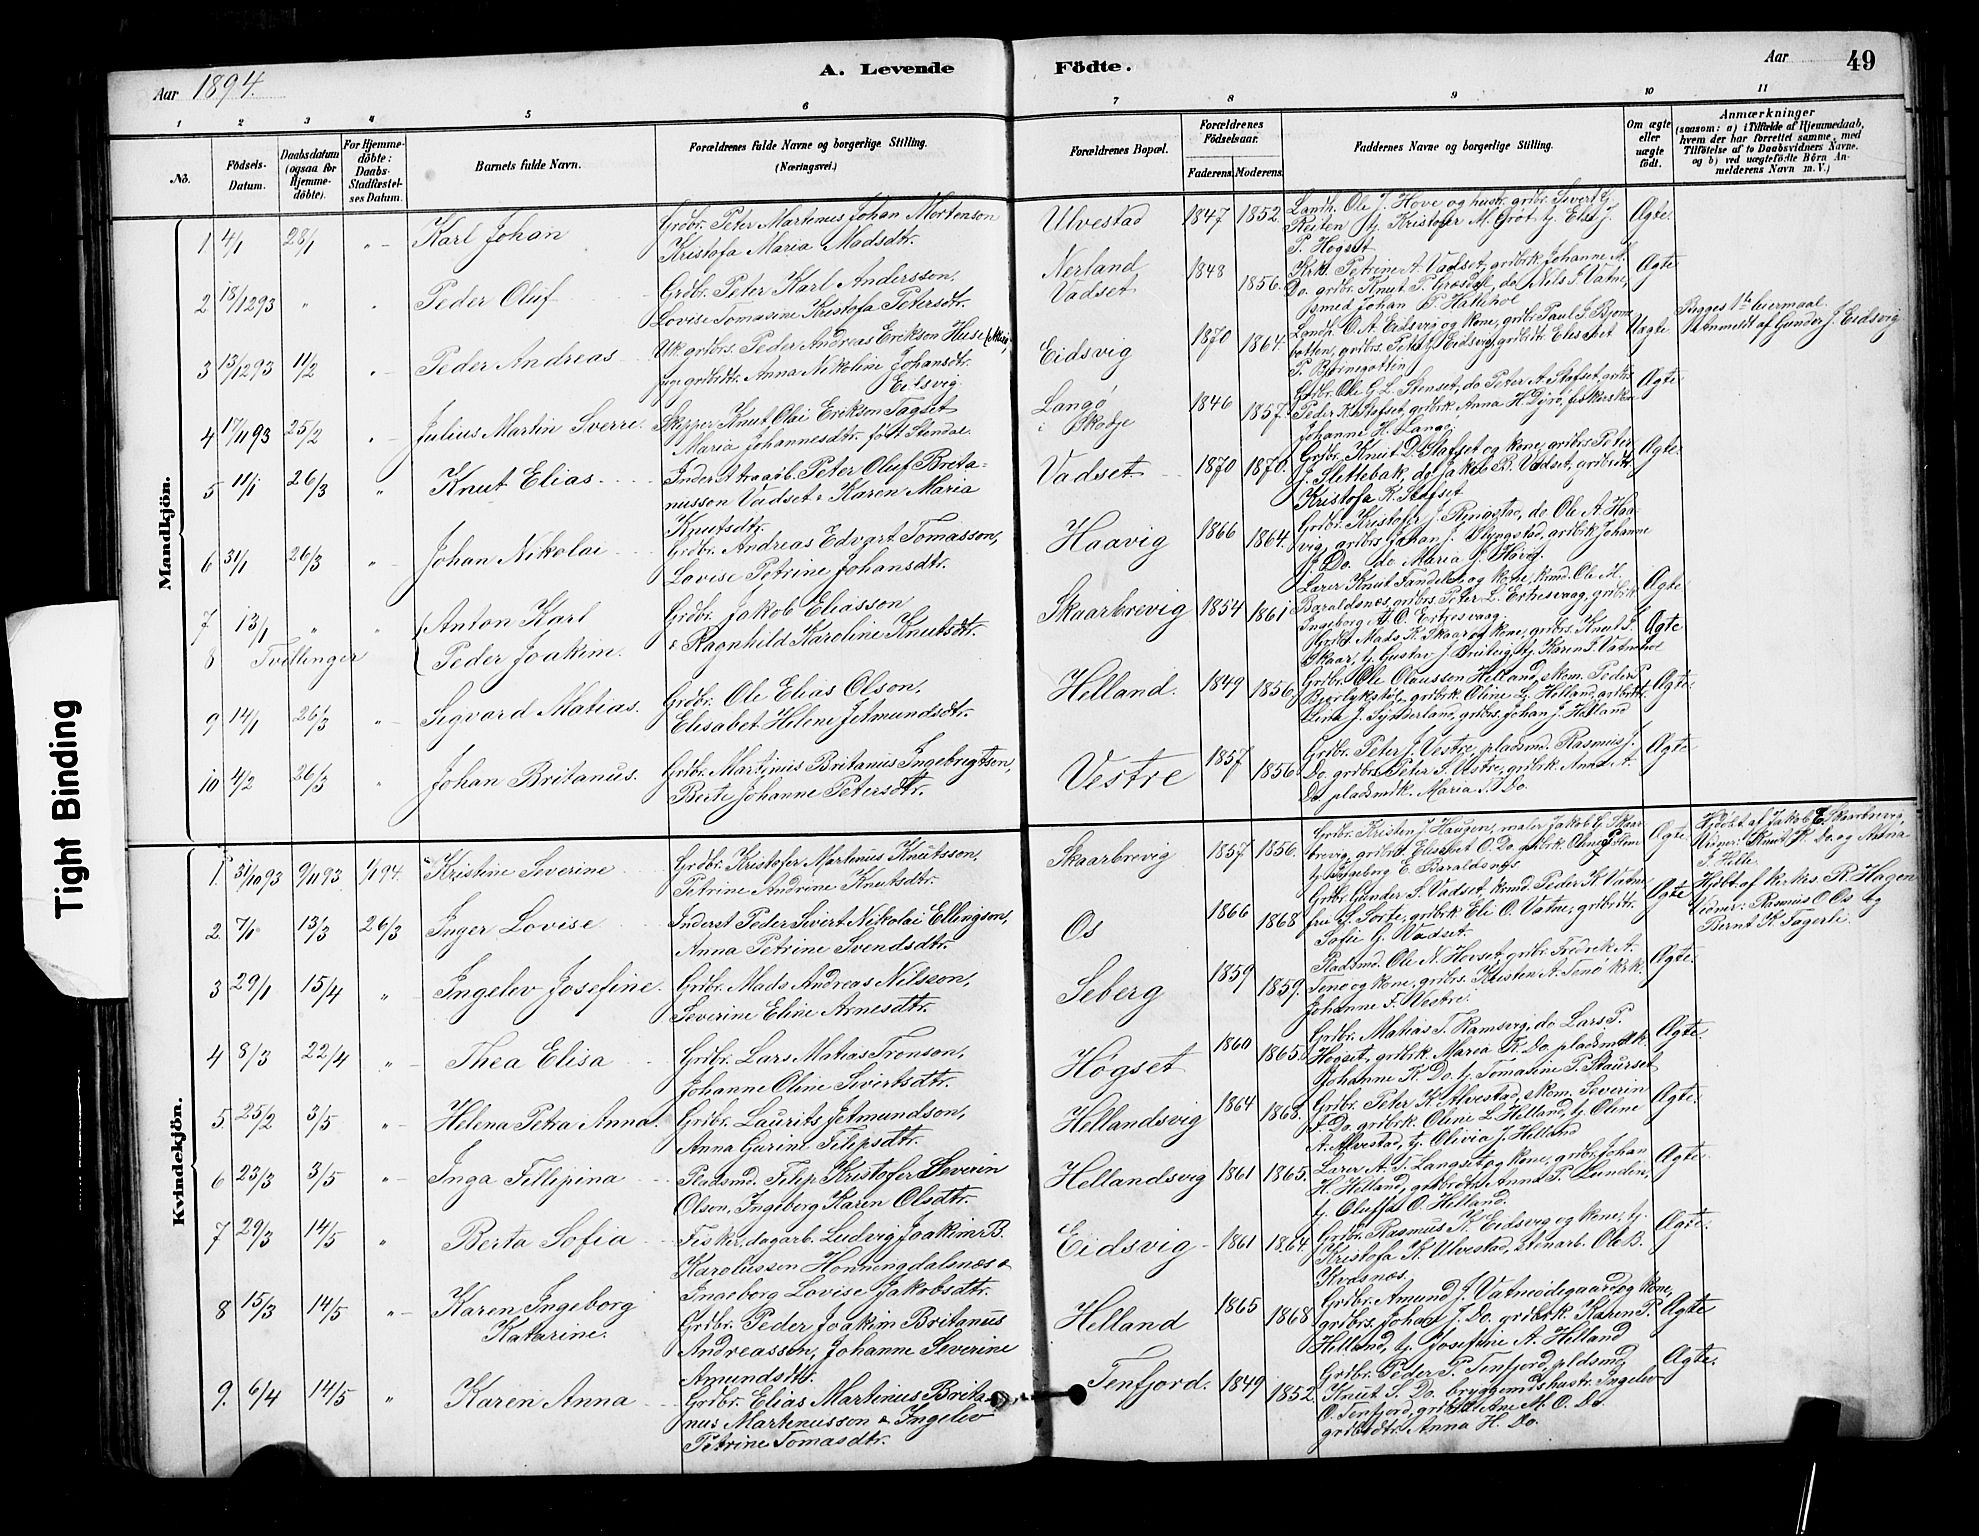 Aar 1894.
A. Levende Födte.
Aar 49
1 2 3 4 5 6 7 8 9 10 11
No.
Födsels-Datum.
Daabsdatum (ogsaa for Hjemme-döbte).
For Hjemme-döbte: Daabs-Stadfæstel-ses Datum.
Barnets fulde Navn.
Forældrenes fulde Navne og borgerlige Stilling. (Næringsvei.)
Forældrenes Bopæl.
Forældrenes Födselsaar.
Faderens. Moderens.
Faddernes Navne og borgerlige Stilling.
Om ægte eller uægte födt.
Anmærkninger
(saasom: a) i Tilfælde af Hjemmedaab, hvem der har forrettet samme, med Tilföielse af to Daabsvidners Navne. og b) ved uægtefödte Börn An-melderens Navn m. V.)
Mandkjön.
1 4/1 28/1 " Karl Johan
Grdbr. Peter Martinus Johan Mortenson
Kristofa Maria Madsdtr.
Ulvestad 1847 1852.
Landh. Ole J. Hove og hustr. grdbr. Sivert G.
Reiten tj. Kristofer M. Grøt tj. Else J.
P. Høgset
Ægte.
2 18/12 93 " " Peder Oluf
Grdbr. Peter Karl Andersson,
Lovise Tomasine Kristofa Petersdtr.
Nerland Vadset 1848 1856.
Krk. Petrine A. Vadset, grdbrk. Johanne A.
Do. grdbr. Knut P. Grøset, do Nels J. Vatne,
smed Johan P. Hatlehol
Ægte
3 13/12 93 11/2 " Peder Andreas
Uk. grdbrs. Peder Andreas Erikson Huse
pige grdbrdtr. Anna Nikoline Johansdtr.
Eidsvig
Eidsvig 1870 1864.
Landh. O. A. Eidsvig og kone, grdbr. Paul J. Bjørn-
botten, grdbrs. Peter J. Eidsvig, grdbrdtr. Elisabet
P. Bjørnebotten
Uægte
Begges 1ste Leiermaal.
Anmeldt af Gunder J. Eidsvig
4 17/11 93 25/2 " Julius Martin Sverre.
Skipper Knut Olai Erikson Tagset
Maria Johannesdtr. født Stendal.
Langø i Skodje 1846 1857.
Grdbr. Ole G. L. Stenset, do Peter A. Stafset, grdbrs.
Peder K. Stafset, grdbrk. Anna H. Dyrø, fiskerskone
Johanne H. Langø
Ægte
5 11/1 26/3 " Knut Elias.
Inderst traarb. Peter Oluf Brita-
nusson Vadset & Karen Maria
Knutsdtr.
Vadset 1870 1870.
Grdbr. Knut D. Stafset og kone, grdbrs. Peter
J. Slettebak, do Jakob B. Vadset, grdbrdtr.
Kristofa K. Stafset
Ægte.
6 31/1 26/3 " Johan Nikolai
Grdbr. Andreas Edvart Tomasson,
Lovise Petrine Johansdtr.
Haavig 1866 1864.
Grdbr. Kristofer J. Ringstad, do Ole A. Haa-
vig, grdbrs. Johan J. Slyngstad, grdbrk. Johanne
J. Do. do Maria J. Håvig.
7 13/1 " " Anton Karl
8 Tvillinger Peder Joakim.
Grdbr. Jakob Eliasson
& Ragnhild Karoline Knutsdtr.
Skaarbrevig 1854 1861
Lærer Knut Tandset og kone, kmd. Ole M.
Baraldsnes, grdbrs. Peter L. Ertresvaag, grdbrk.
Ingeborg A. O. Ertresvaag
Grdbr. Mads K. Skaar og kone, grdbrs. Knut J.
Skaar, tj. Gustav J. Breivig, tj. Karen J. Vatnehol
Ægte
Ægte
9 14/1 26/3 " Sigvard Matias.
Grdbr. Ole Elias Olson,
Elisabet Helene Jetmundsdtr.
Helland. 1849 1856.
Grdbr. Ole Olausson Helland, skom. Peder P.
Bjørlykstøl, grdbrk. Oline L. Helland, grdbrdtr.
J. Synnerland, grdbrs. Johan J. Helland
Ægte.
10 4/2 26/3 " Johan Britanus.
Grdbr. Martinus Britanus Ingebrigtson,
Berte Johanne Petersdtr.
Vestre 1857 1856
Grdbr. Peter J. Vestre, pladsmd. Rasmus J.
Do. grdbrs. Peter S. Vestre, grdbrk. Anna A.
Do pladsmdk. Maria S. Do.
Ægte
Kvindekjön.
1. 31/10 93 9/11 93 1/1 94. Kristine Severine
Grdbr. Kristofer Martinus Knutsson,
Petrine Andrine Knutsdtr.
Skaarbrevig 1857 1856.
Grdbr. Kristen J. Haugen, maler Jakob E. Skaar-
brevig, grdbrk. Elisabet O. Do. grdbrk. Oline P. Slem
tj. Ingeborg E. Baraldsnes
Ægte
Hjdøbt af Jakob E. Skaarbrevig,
Vidner: Knut K. Do. og Anna
J. Helle
2. 7/1 13/3 26/3 Inger Lovise
Inderst Peder Sivert Nikolai Ellingson,
Anna Petrine Svendsdtr.
Os 1866 1868
Grdbr. Gunder S. Vadset, krmd. Peder K. Vatne
fru S. Torte, grdbrk. Eli O. Vatne, grdbrdtr.
Sofie G. Vadset.
Ægte
Hjdbt. af kirkes. R. Hagen
Vidner: Rasmus O. Os og
Bernt K. Fagerli.
3 29/1 15/4 " Ingelev Josefine.
Grdbr. Mads Andreas Nilsson,
Severine Eline Arnesdtr.
Seberg 1859 1859.
Pladsmd. Ole N. Hovset, grdbr. Fredrik A.
Tenø og kone, grdbrs. Kristen A. Tenø krk.
Johanne F. Vestre.
Ægte.
4 8/3 22/4 " Thea Elisa
Grdbr. Lars Matias Tronson,
Johanne Oline Sivertsdtr.
Høgset 1860 1865.
Grdbr. Matias T. Ramsvig, do Lars P.
Høgset, grdbrk. Maria K. Do. pladsmdk.
Johanne K. Do. tj. Tomasine P. Staurset
Ægte.
5. 25/2 3/5 " Helena Petra Anna.
Grdbr. Laurits Jetmundson,
Anna Gurine Filipsdtr.
Hellandsvig 1864 1868.
Grdbr. Peter K. Alvestad, skom. Severin
F. Do. grdbrk. Oline L. Helland, tj. Oline
A. Alvestad, tj. Olivia J. Helland
Ægte.
6 23/3 3/5 " Inga Fillipina
Pladsmd. Filip Kristofer Severin
Olson, Ingeborg Karen Olsdtr.
Hellandsvig 1861 1865.
Lærer A. T. Langset og kone, grdbr. Johan
H. Helland, grdbrdtr. Anna P. Lunden,
tj. Oluffa O. Helland.
Ægte.
7 29/3 14/5 " Berta Sofia
Fisker, dagarb. Ludvig Joakim B.
Karolusson Honningdalsnes &
Ingeborg Lovise Jakobsdtr.
Eidsvig 1861 1864.
Grdbr. Rasmus K. Eidsvig og kone, tj.
Kristofa K. Ulvestad, stenarb. Ole B.
Kvdsnes.
Ægte.
8 15/3 14/5 " Karen Ingeborg
Katarine.
Grdbr. Peder Joakim Britanus
Andreasson, Johanne Severine
Amundsdtr.
Helland 1865 1868
Grdbr. Amund J. Vatneødegaard og kone,
grdbrs. Johan J. Do. grdbrk. Karen P.
Helland, tj. Josefine A. Helland
Ægte
9. 6/4 14/5 " Karen Anna
Grdbr. Elias Martinus Brita-
nus Martinusson & Ingelev
Petrine Tomasdtr.
Tenfjord. 1849 1852.
Grdbr. Peder P. Tenfjord, pldsmd
Knut S. Do. bryggemdshustr. Ingelev
O. Tenfjord, grdbrk. Ane M. O. Do.
grdbrdtr. Anna H. Do.
Ægte.
Tight Binding